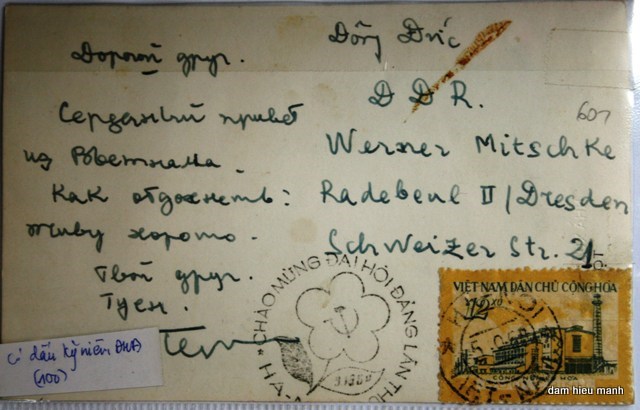 Дорогой друг.
Сердечный привет
из Вьетнама.
Как отдохнеть:
живу хорошо.
Твой друг.
Туен.
Đông Đức
D D R.
Werner Mitschke
Radebeul II / Dresden
Schweizer Str. 21
601
"CHÀO MỪNG ĐẠI HỘI ĐẢNG LẦN THỨ
HÀ-
9.1960
VIỆT NAM DÂN CHỦ CỘNG HÒA
12 xu
HANOI
VIET-NAM
có dấu kỷ niệm ĐHĐ
(100)
dam hieu manh